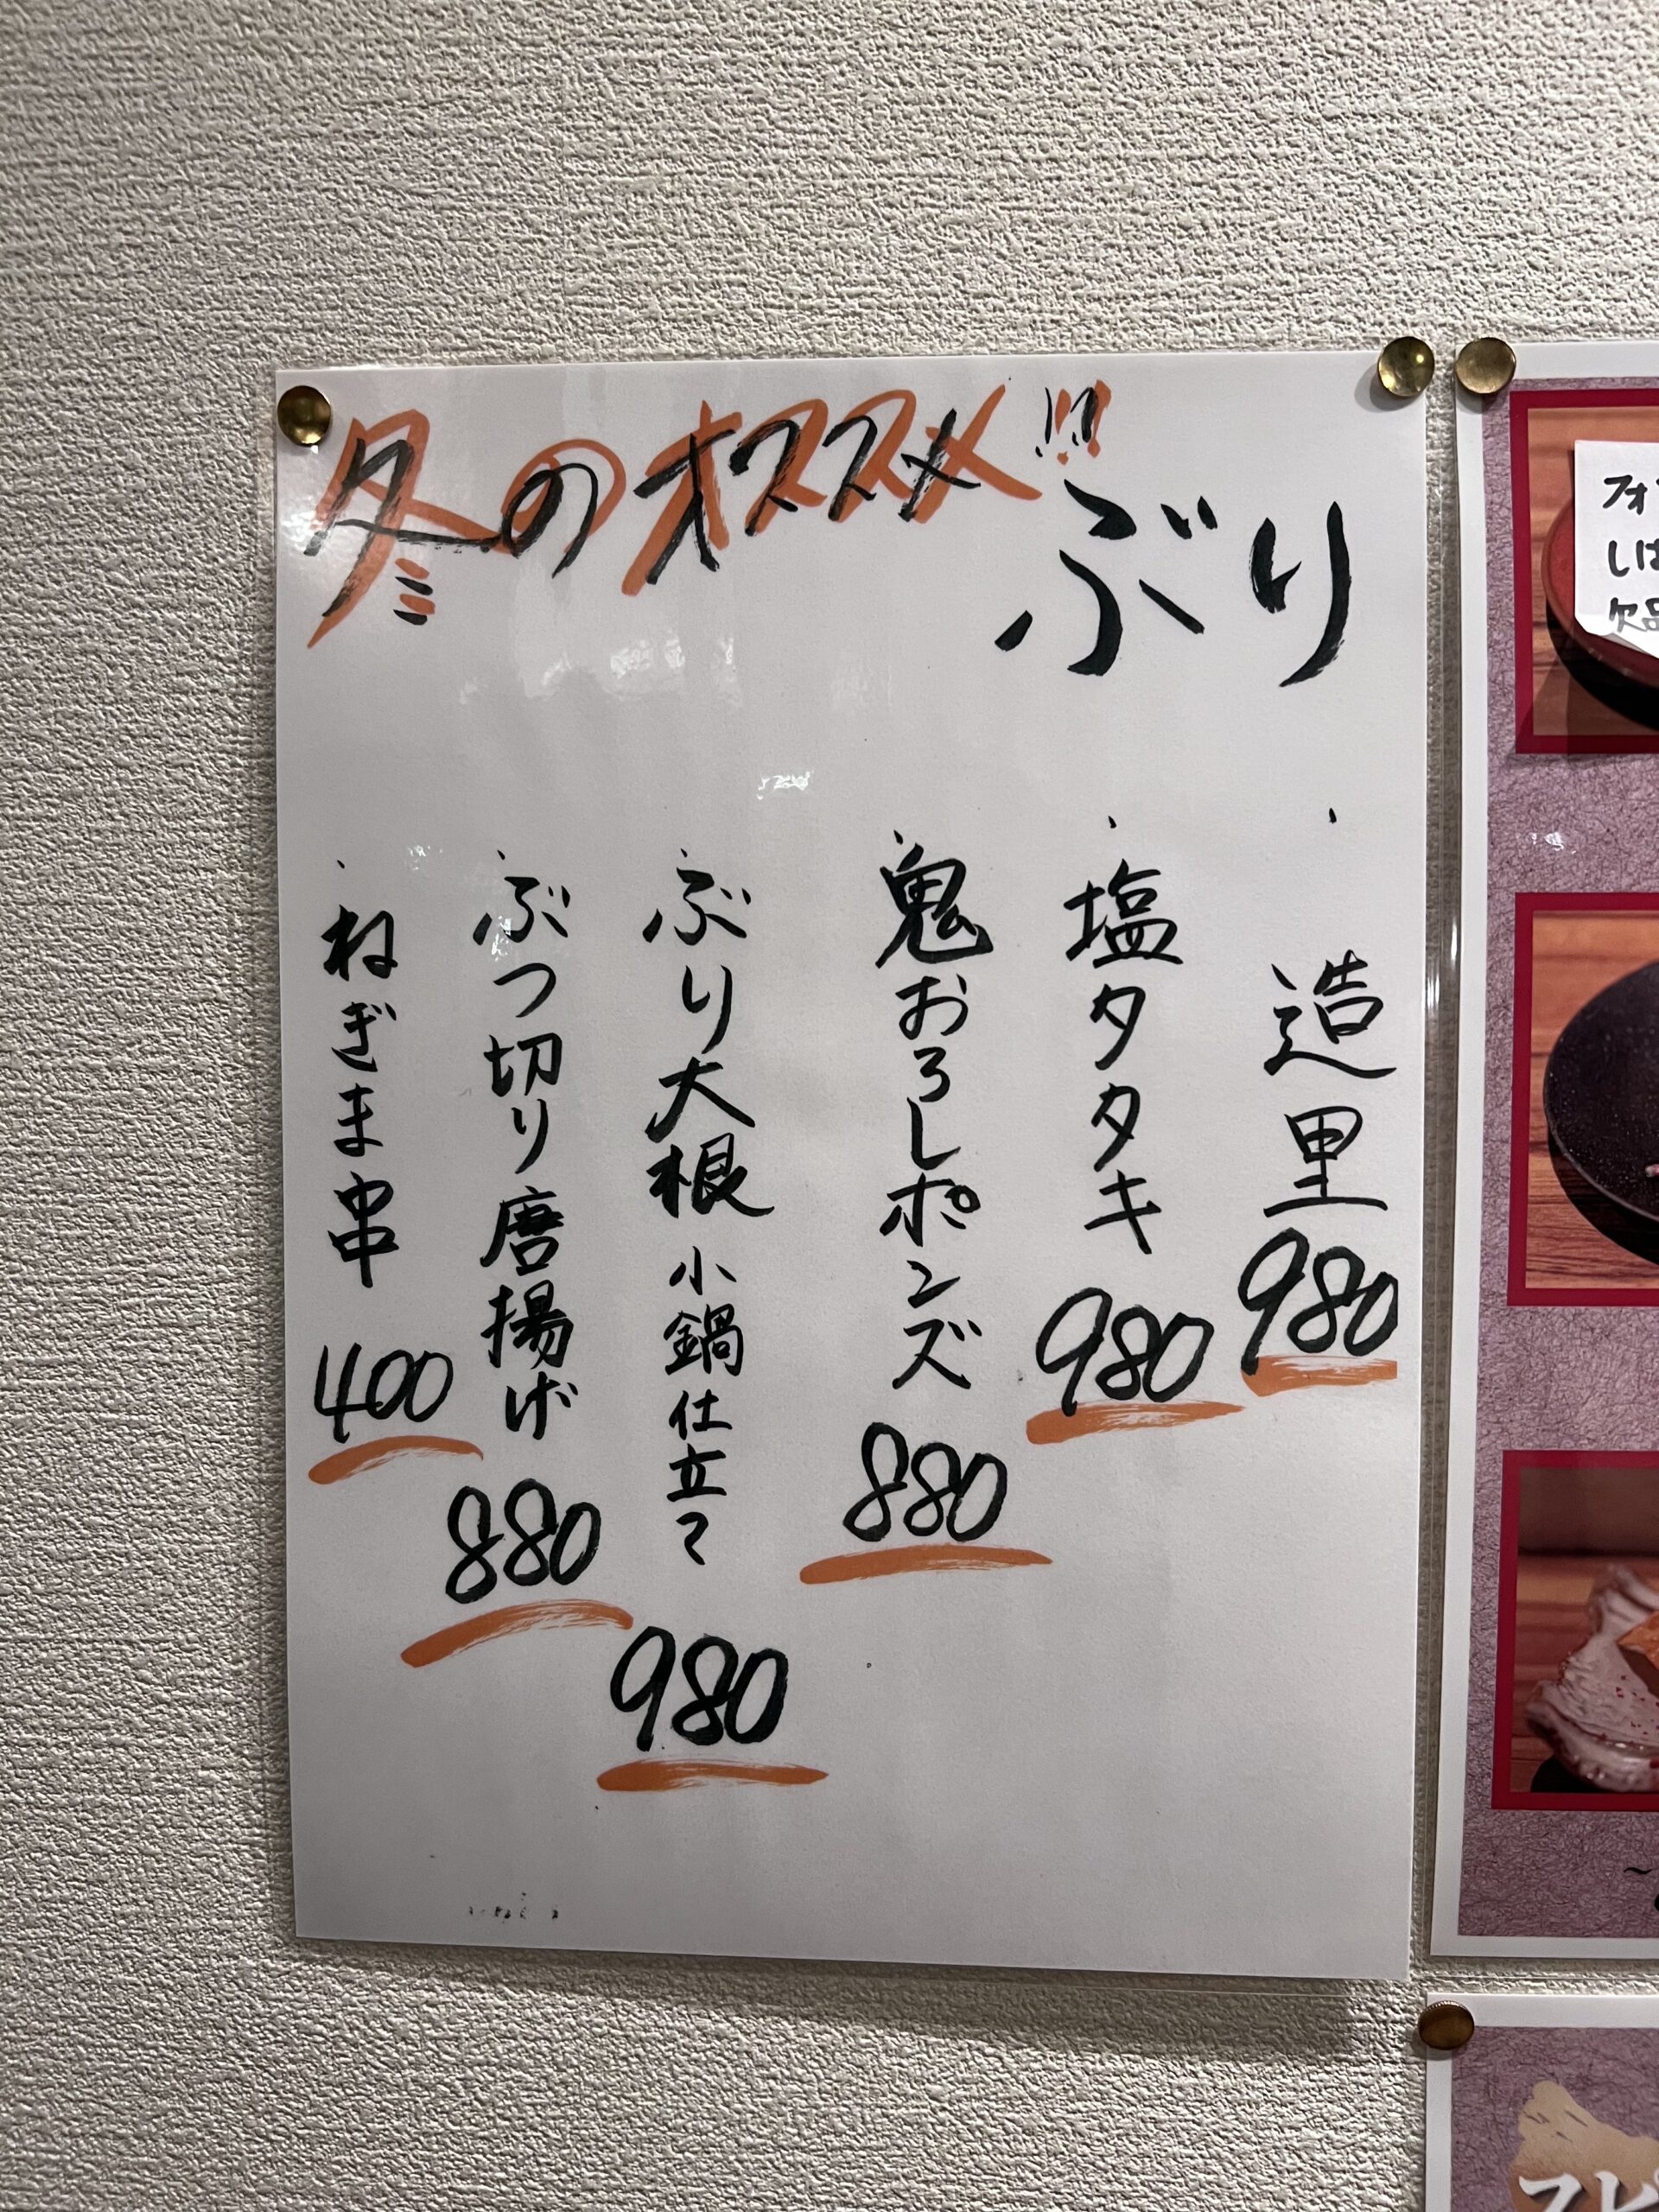 冬のオススメ!!!
ぶり
・造里 980
・塩タタキ 980
・鬼おろしポンズ 880
・ぶり大根 小鍋仕立て 980
・ぶつ切り唐揚げ 880
・ねぎま串 400
フォ
しば
欠品